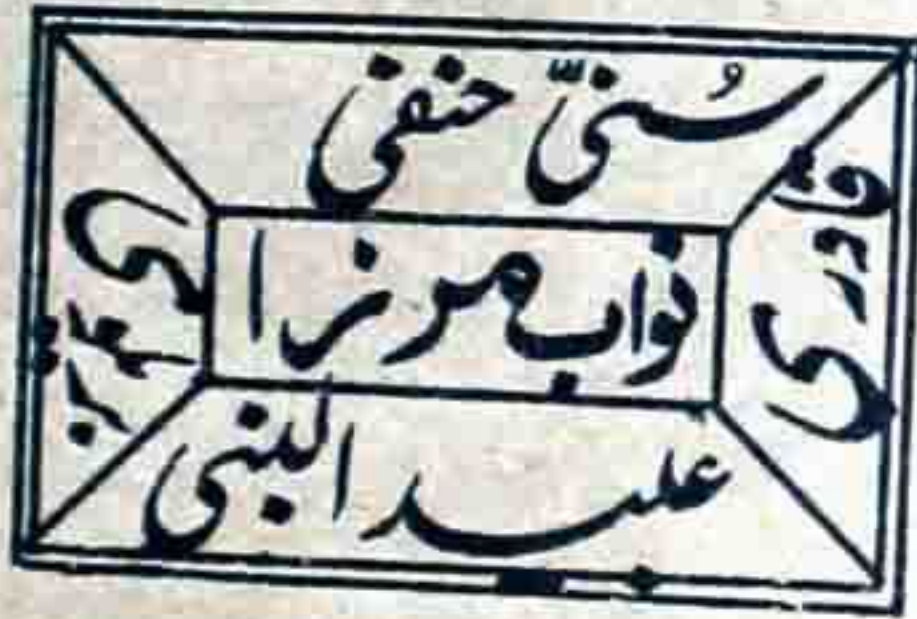 سُنیّ حنفی
قادری
نواب مرزا
عبد النبی